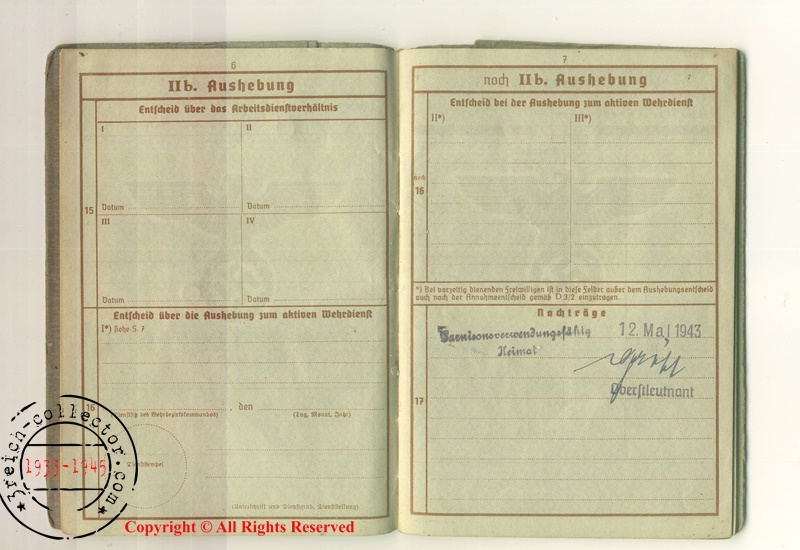 6
II b. Aushebung
15
Entscheid über das Arbeitsdienstverhältnis
I
II
Datum
Datum
III
IV
Datum
Datum
16
Entscheid über die Aushebung zum aktiven Wehrdienst
I*) siehe S. 7
, den
(Dienstsitz des Wehrbezirkskommandos)
(Tag, Monat, Jahr)
Dienststempel
(Unterschrift und Dienstgrad, Dienststellung)
7
noch II b. Aushebung
noch
16
Entscheid bei der Aushebung zum aktiven Wehrdienst
II*)
III*)
*) Bei vorzeitig dienenden Freiwilligen ist in diese Felder außer dem Aushebungsentscheid
auch noch der Annahmeentscheid gemäß D 3/2 einzutragen.
17
Nachträge
Garnisonsverwendungsfähig
Heimat
12. Mai 1943
Oberstleutnant
3reich-collector.com
1933-1945
Copyright © All Rights Reserved